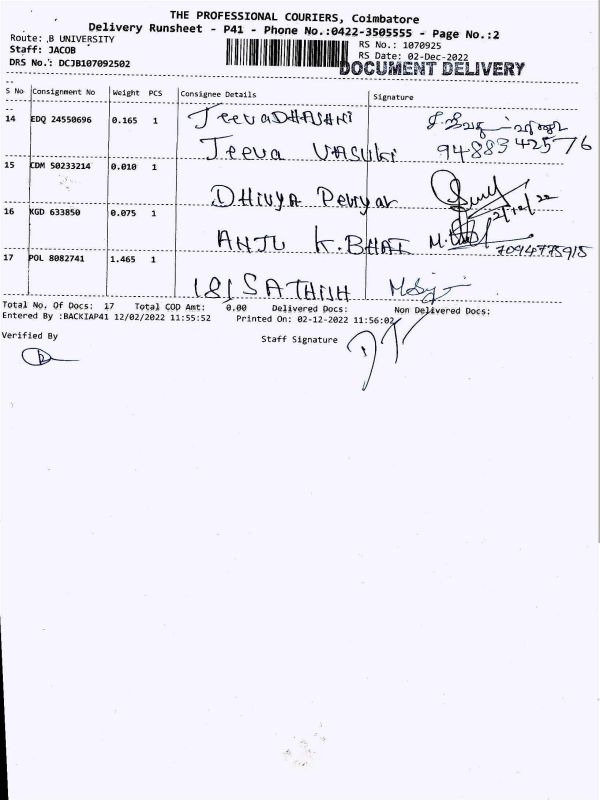 THE PROFESSIONAL COURIERS, Coimbatore
Delivery Runsheet - P41 - Phone No.:0422-3505555 - Page No.:2
Route: .B UNIVERSITY
Staff: JACOB
RS No.: 1070925
RS Date: 02-Dec-2022
DRS No.: DCJB107092502
DOCUMENT DELIVERY
S No Consignment No Weight PCS Consignee Details Signature
14 EDQ 24550696 0.165 1 JeevaDHASHNI
Jeeva VASUKI 9488342576
15 CDM 50233214 0.010 1
DHIVYA Periyar
2/12/22
16 KGD 633850 0.075 1
ANJU K.BHAT 7094775915
17 POL 8082741 1.465 1
181 SATHISH
Total No. Of Docs: 17 Total COD Amt: 0.00 Delivered Docs: Non Delivered Docs:
Entered By :BACKIAP41 12/02/2022 11:55:52 Printed On: 02-12-2022 11:56:02
Verified By Staff Signature